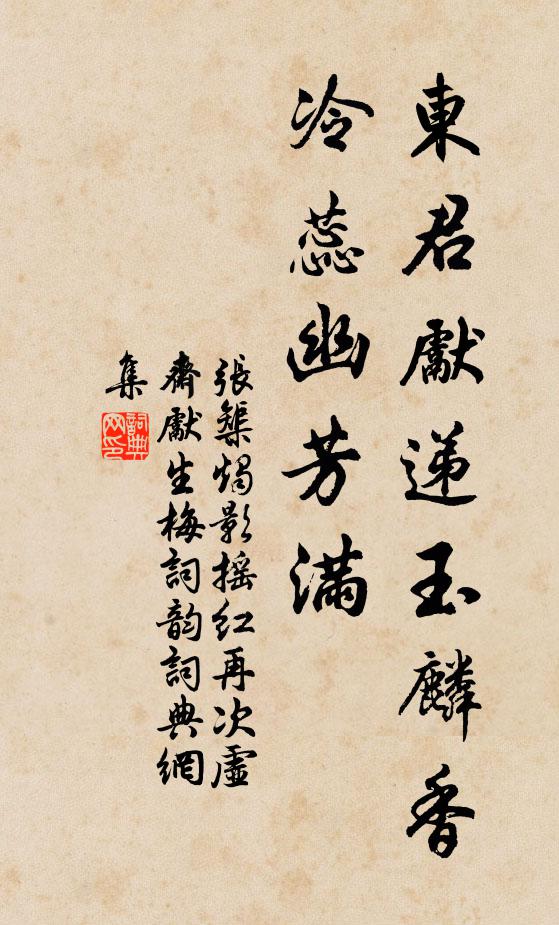 東君獻遞玉麟香
冷蕊幽芳滿
張榘燭影摇紅再次虛
齋獻生梅詞韵詞典網
集
詞典網印